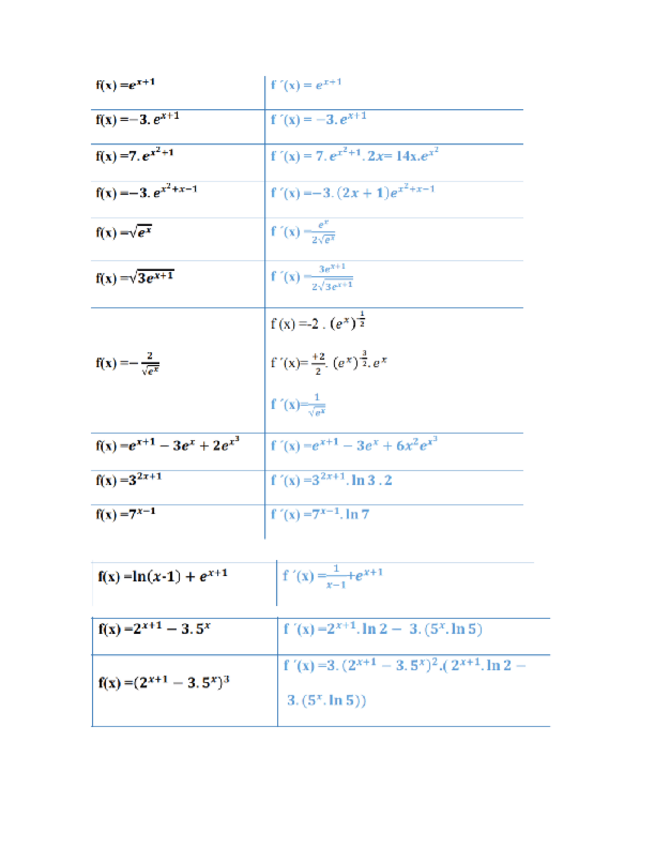 f(x) =e^{x+1} f ´(x) = e^{x+1}
f(x) =−3. e^{x+1} f ´(x) = −3. e^{x+1}
f(x) =7. e^{x²+1} f ´(x) = 7. e^{x²+1}. 2x= 14x.e^{x²}
f(x) =−3. e^{x²+x−1} f ´(x) =−3. (2x + 1)e^{x²+x−1}
f(x) =√(e^x) f ´(x) = e^x / 2√(e^x)
f(x) =√(3e^{x+1}) f ´(x) = 3e^{x+1} / 2√(3e^{x+1})
f (x) =-2 . (e^x)^{1/2}
f(x) =− 2/√(e^x) f ´(x)= +2/2 . (e^x)^{3/2}. e^x
f ´(x)= 1/√(e^x)
f(x) =e^{x+1} − 3e^x + 2e^{x³} f ´(x) =e^{x+1} − 3e^x + 6x²e^{x³}
f(x) =3^{2x+1} f ´(x) =3^{2x+1}. ln 3 . 2
f(x) =7^{x−1} f ´(x) =7^{x−1}. ln 7
f(x) =ln(x-1) + e^{x+1} f ´(x) = 1/(x−1) +e^{x+1}
f(x) =2^{x+1} − 3. 5^x f ´(x) =2^{x+1}. ln 2 − 3. (5^x. ln 5)
f(x) =(2^{x+1} − 3. 5^x)³ f ´(x) =3. (2^{x+1} − 3. 5^x)².( 2^{x+1}. ln 2 −
3. (5^x. ln 5))